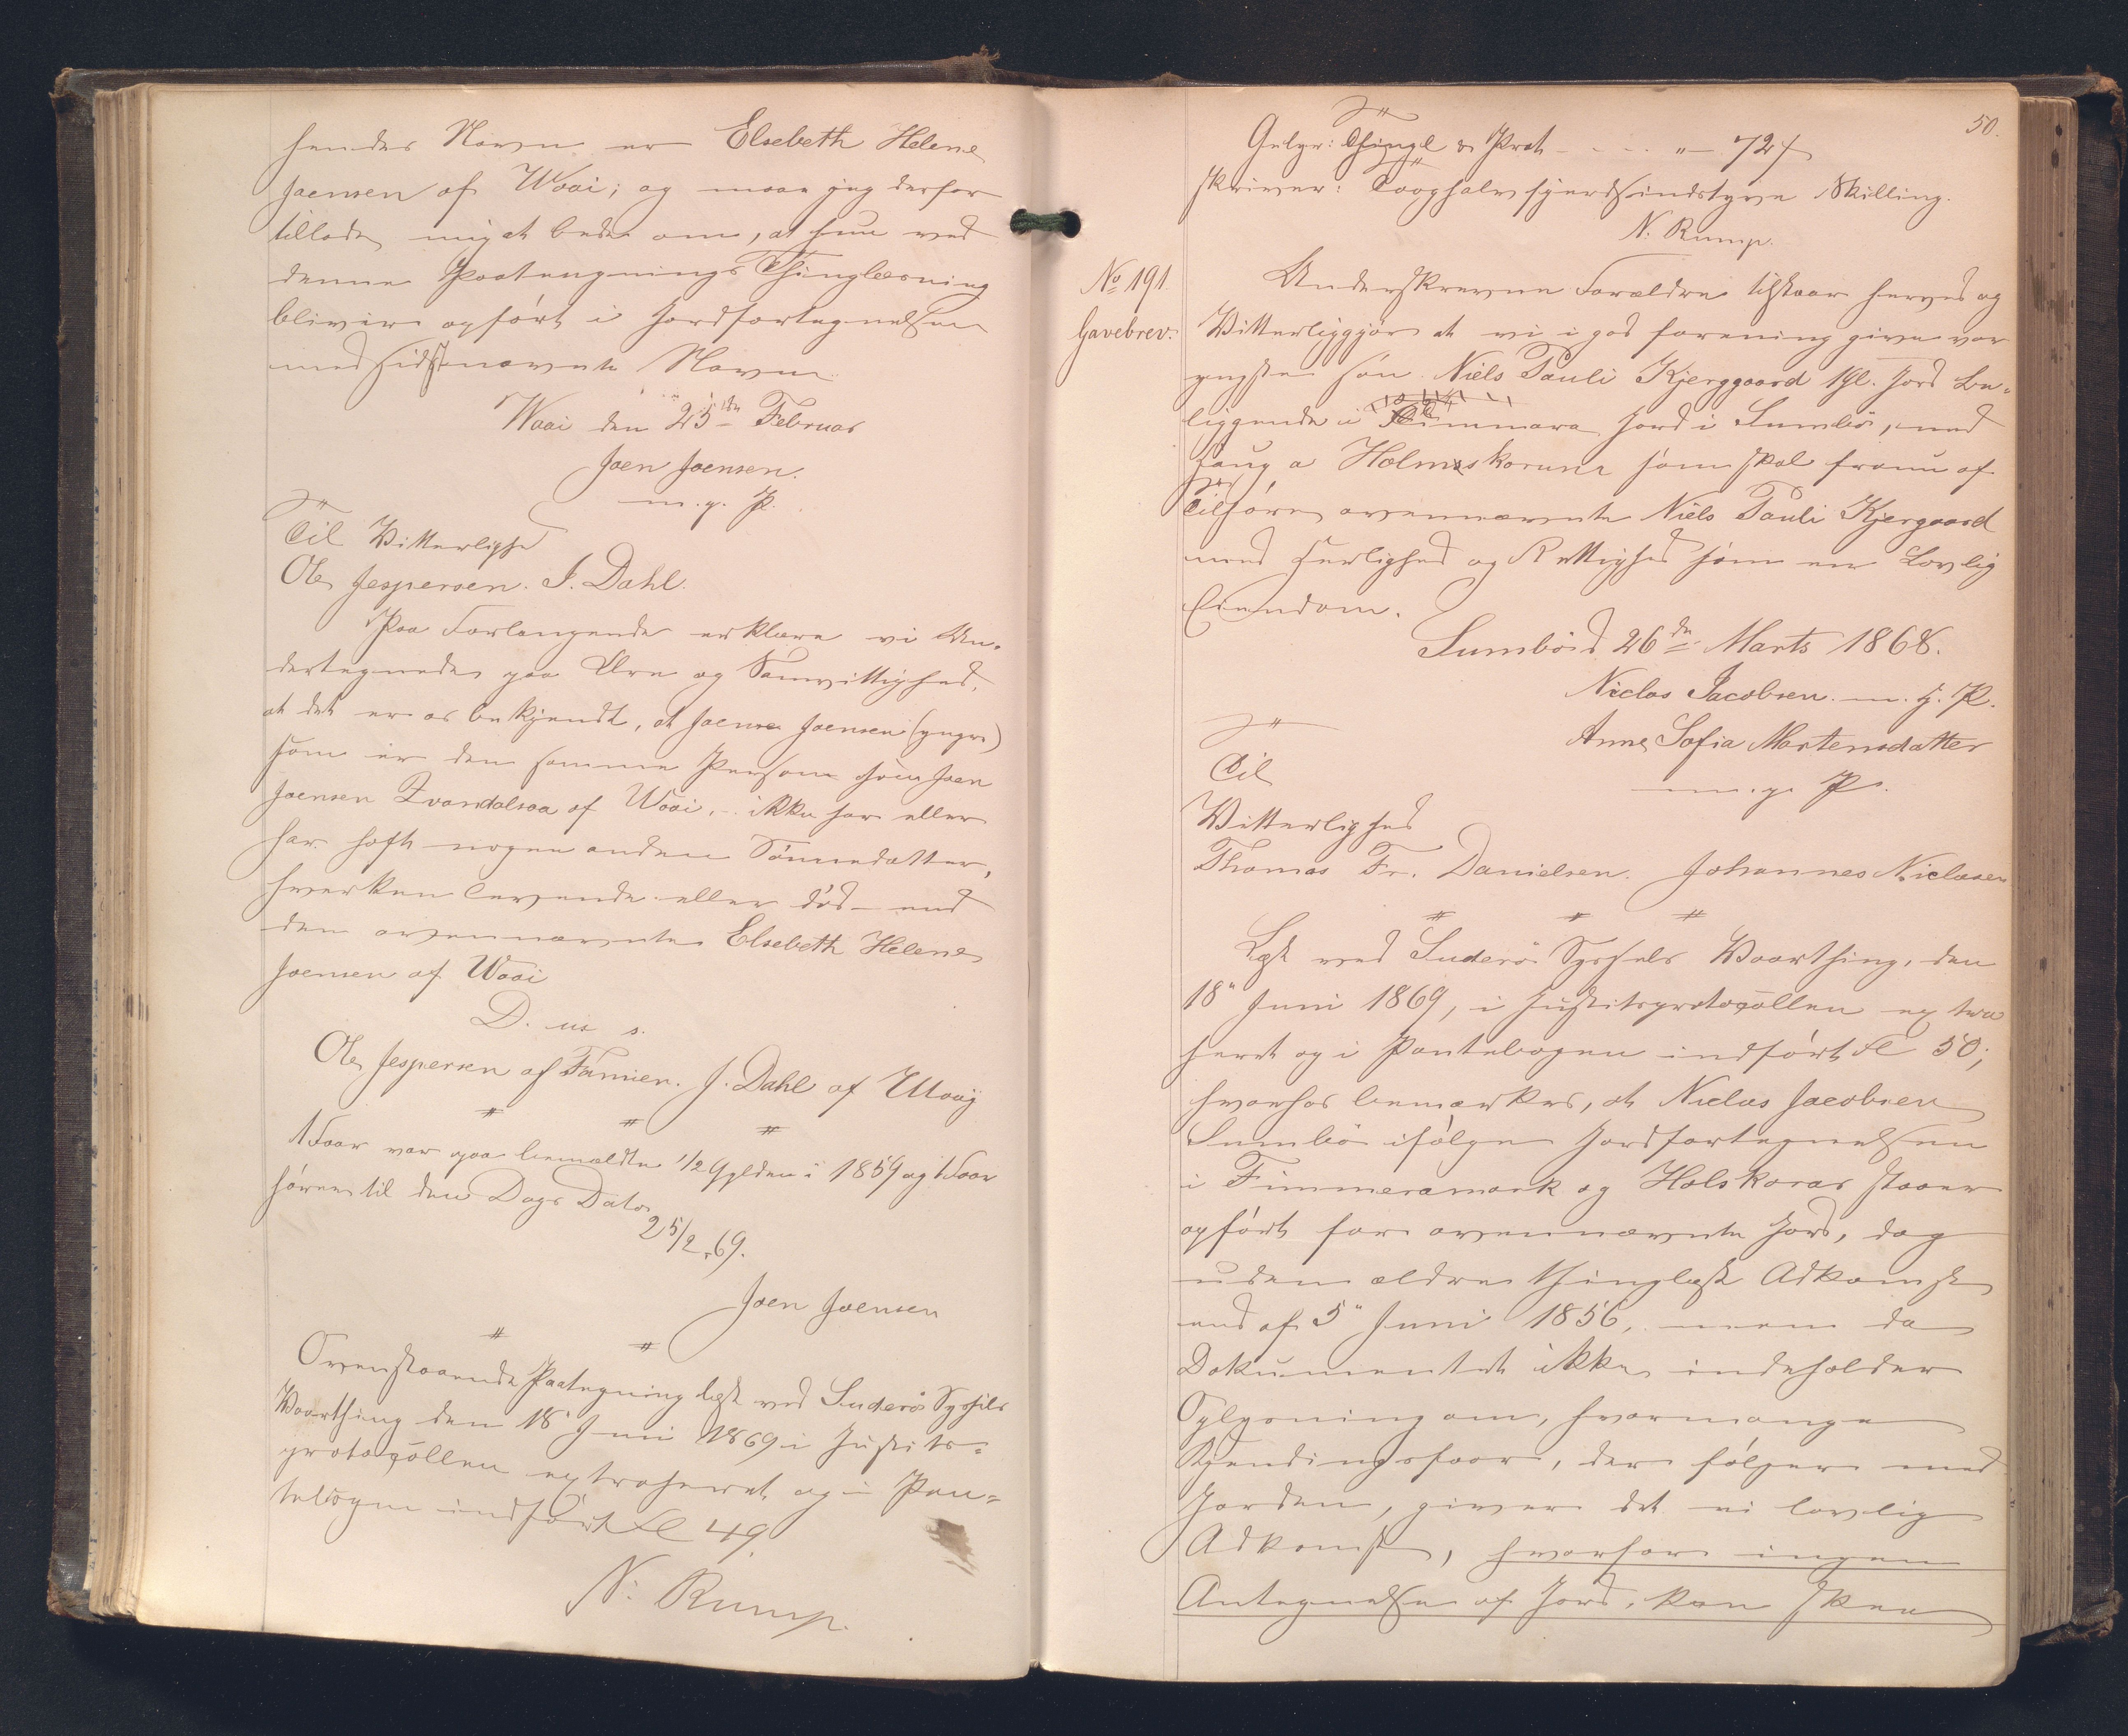 hendes Navn er Elsebeth Helene
Joensen af Waai; og maae jeg derfor
tillade mig at bede om, at hun ved
denne Paategnings Thinglæsning
bliver opført i Jordfortegnelsen
med sidstnævnte Navn.
Waai den 25de Februar
Joen Joensen.
m. p. P.
Til Vitterlighed
Ole Jespersen. J. Dahl.
Paa Forlangende erklære vi Un-
dertegnede paa Ære og Samvittighed,
at det er os bekjendt, at Joen Joensen (yngre)
som er den samme Person som Joen
Joensen Zvardalsaa af Waai, ikke har eller
har haft nogen anden Sønnedatter,
hverken levende eller død end
den ovennævnte Elsebeth Helene
Joensen af Waai
D. u. s.
Ole Jespersen af Famien. J. Dahl af Waaij
1 Faar var paa bemældte 1/2 Gylden i 1859 og 1 Faar
hører til den Dags Dato
25/2 69.
Joen Joensen
Ovenstaaende Paategning læst ved Suderø Syssels
Vaarthing den 18 Juni 1869 i Justits-
protocollen extraheret og i Pan-
tebogen indført Fol 49
N: Rump.
50.
Gebyr: Thingl & Prot - - - " - 72 f
skriver: Tooghalvfjerdsindstyve Skilling.
N. Rump.
No 191.
Gavebrev.
Underskrevne Forældre tilstaar herved og
Vitterliggjør at vi i god forening give vor
yngste søn Niels Pauli Kjerggaard 1 Gl. Jord be-
liggende i Fimmara Jord i Sumbø, med
Haug a Holmskorune som skal fra nu af
Tilhøre ovennævnte Niels Pauli Kjergaard
med Herlighed og Rettighed som en Lovlig
Eiendom.
Sumbø d 26de Marts 1868.
Niclas Jacobsen. m. f. P.
Anne Sofia Mortensdatter
m. p. P.
Til
Vitterlighed
Thomas Fr. Danielsen. Johannes Niclasen
Læst ved Suderø Syssels Vaarthing, den
18" Juni 1869, i Justitsprotocollen extra
heret og i Pantebogen indført Fol 50;
hvorhos bemærkes, at Niclas Jacobsen
Sumbø ifølge Jordfortegnelsen
i Fimmeramark og Holskorar staaer
opført for ovennævnte Jord, dog
uden ældre thinglæst Adkomst
end af 5" Juni 1856, men da
Dokumentet ikke indeholder
Oplysning om, hvormange
Kjendingsfaar, der følger med
Jorden, giver det ei lovlig
Adkomst, hvorfor ingen
Antegnelse af Jord, kan skee